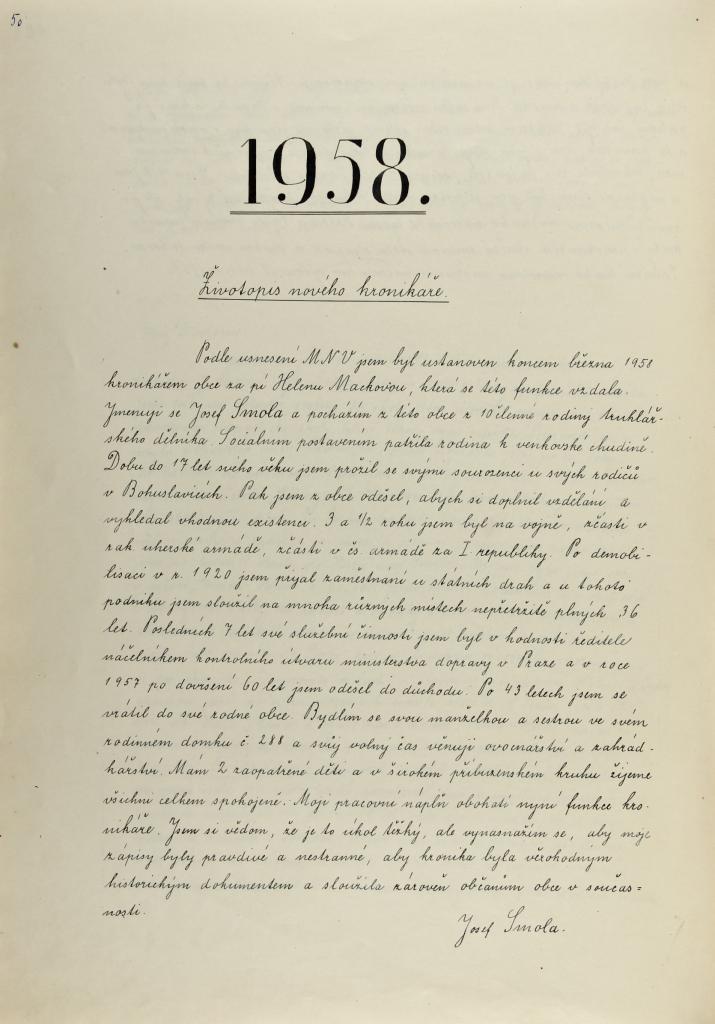 50
1958.
Životopis nového kronikáře.
Podle usnesení MNV jsem byl ustanoven koncem března 1958
kronikářem obce za pí Helenu Mackovou, která se této funkce vzdala.
Jmenuji se Josef Smola a pocházím z této obce z 10členné rodiny truhlář-
ského dělníka. Sociálním postavením patřila rodina k venkovské chudině.
Dobu do 17 let svého věku jsem prožil se svými sourozenci u svých rodičů
v Bohuslavicích. Pak jsem z obce odešel, abych si doplnil vzdělání a
vyhledal vhodnou existenci. 3 a 1/2 roku jsem byl na vojně, zčásti v
rak. uherské armádě, zčásti v čs. armádě za I. republiky. Po demobi-
lisaci v r. 1920 jsem přijal zaměstnání u státních drah a u tohoto
podniku jsem sloužil na mnoha různých místech nepřetržitě plných 36
let. Posledních 7 let své služební činnosti jsem byl v hodnosti ředitele
náčelníkem kontrolního útvaru ministerstva dopravy v Praze a v roce
1957 po dovršení 60 let jsem odešel do důchodu. Po 43 letech jsem se
vrátil do své rodné obce. Bydlím se svou manželkou a sestrou ve svém
rodinném domku č. 288 a svůj volný čas věnuji ovocnářství a zahrád-
kářství. Mám 2 zaopatřené děti a v širokém příbuzenském kruhu žijeme
všichni celkem spokojeně. Moji pracovní náplň obohatí nyní funkce kro-
nikáře. Jsem si vědom, že je to úkol těžký, ale vynasnažím se, aby moje
zápisy byly pravdivé a nestranné, aby kronika byla věrohodným
historickým dokumentem a sloužila zároveň občanům obce v součas=
nosti.
Josef Smola.